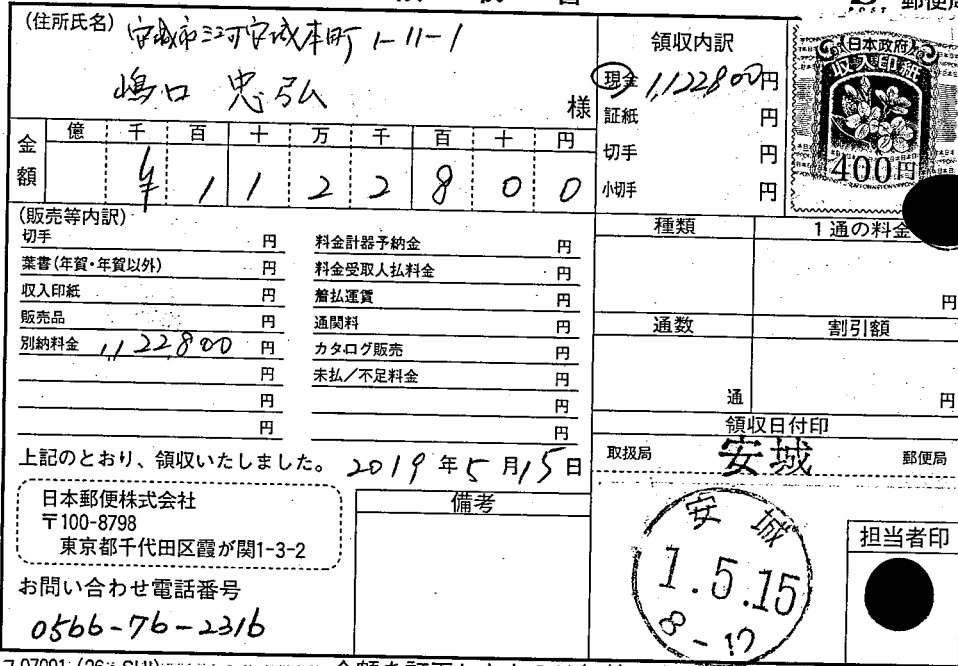 郵便局
(住所氏名) 安城市三河安城本町 1-11-1
嶋口 忠弘 様
金額
億 千 百 十 万 千 百 十 円
¥ 1 1 2 2 8 0 0
領収内訳
現金 1,122800円
証紙 円
切手 円
小切手 円
日本政府
収入印紙
400円
(販売等内訳)
切手 円
葉書(年賀・年賀以外) 円
収入印紙 円
販売品 円
別納料金 1,122,800 円
円
円
円
料金計器予納金 円
料金受取人払料金 円
着払運賃 円
通関料 円
カタログ販売 円
未払/不足料金 円
円
円
種類 1通の料金
円
通数 割引額
通 円
領収日付印
取扱局 安城 郵便局
安城
1.5.15
8-12
担当者印
上記のとおり、領収いたしました。 2019年5月15日
日本郵便株式会社
〒100-8798
東京都千代田区霞が関1-3-2
お問い合わせ電話番号
0566-76-2316
備考